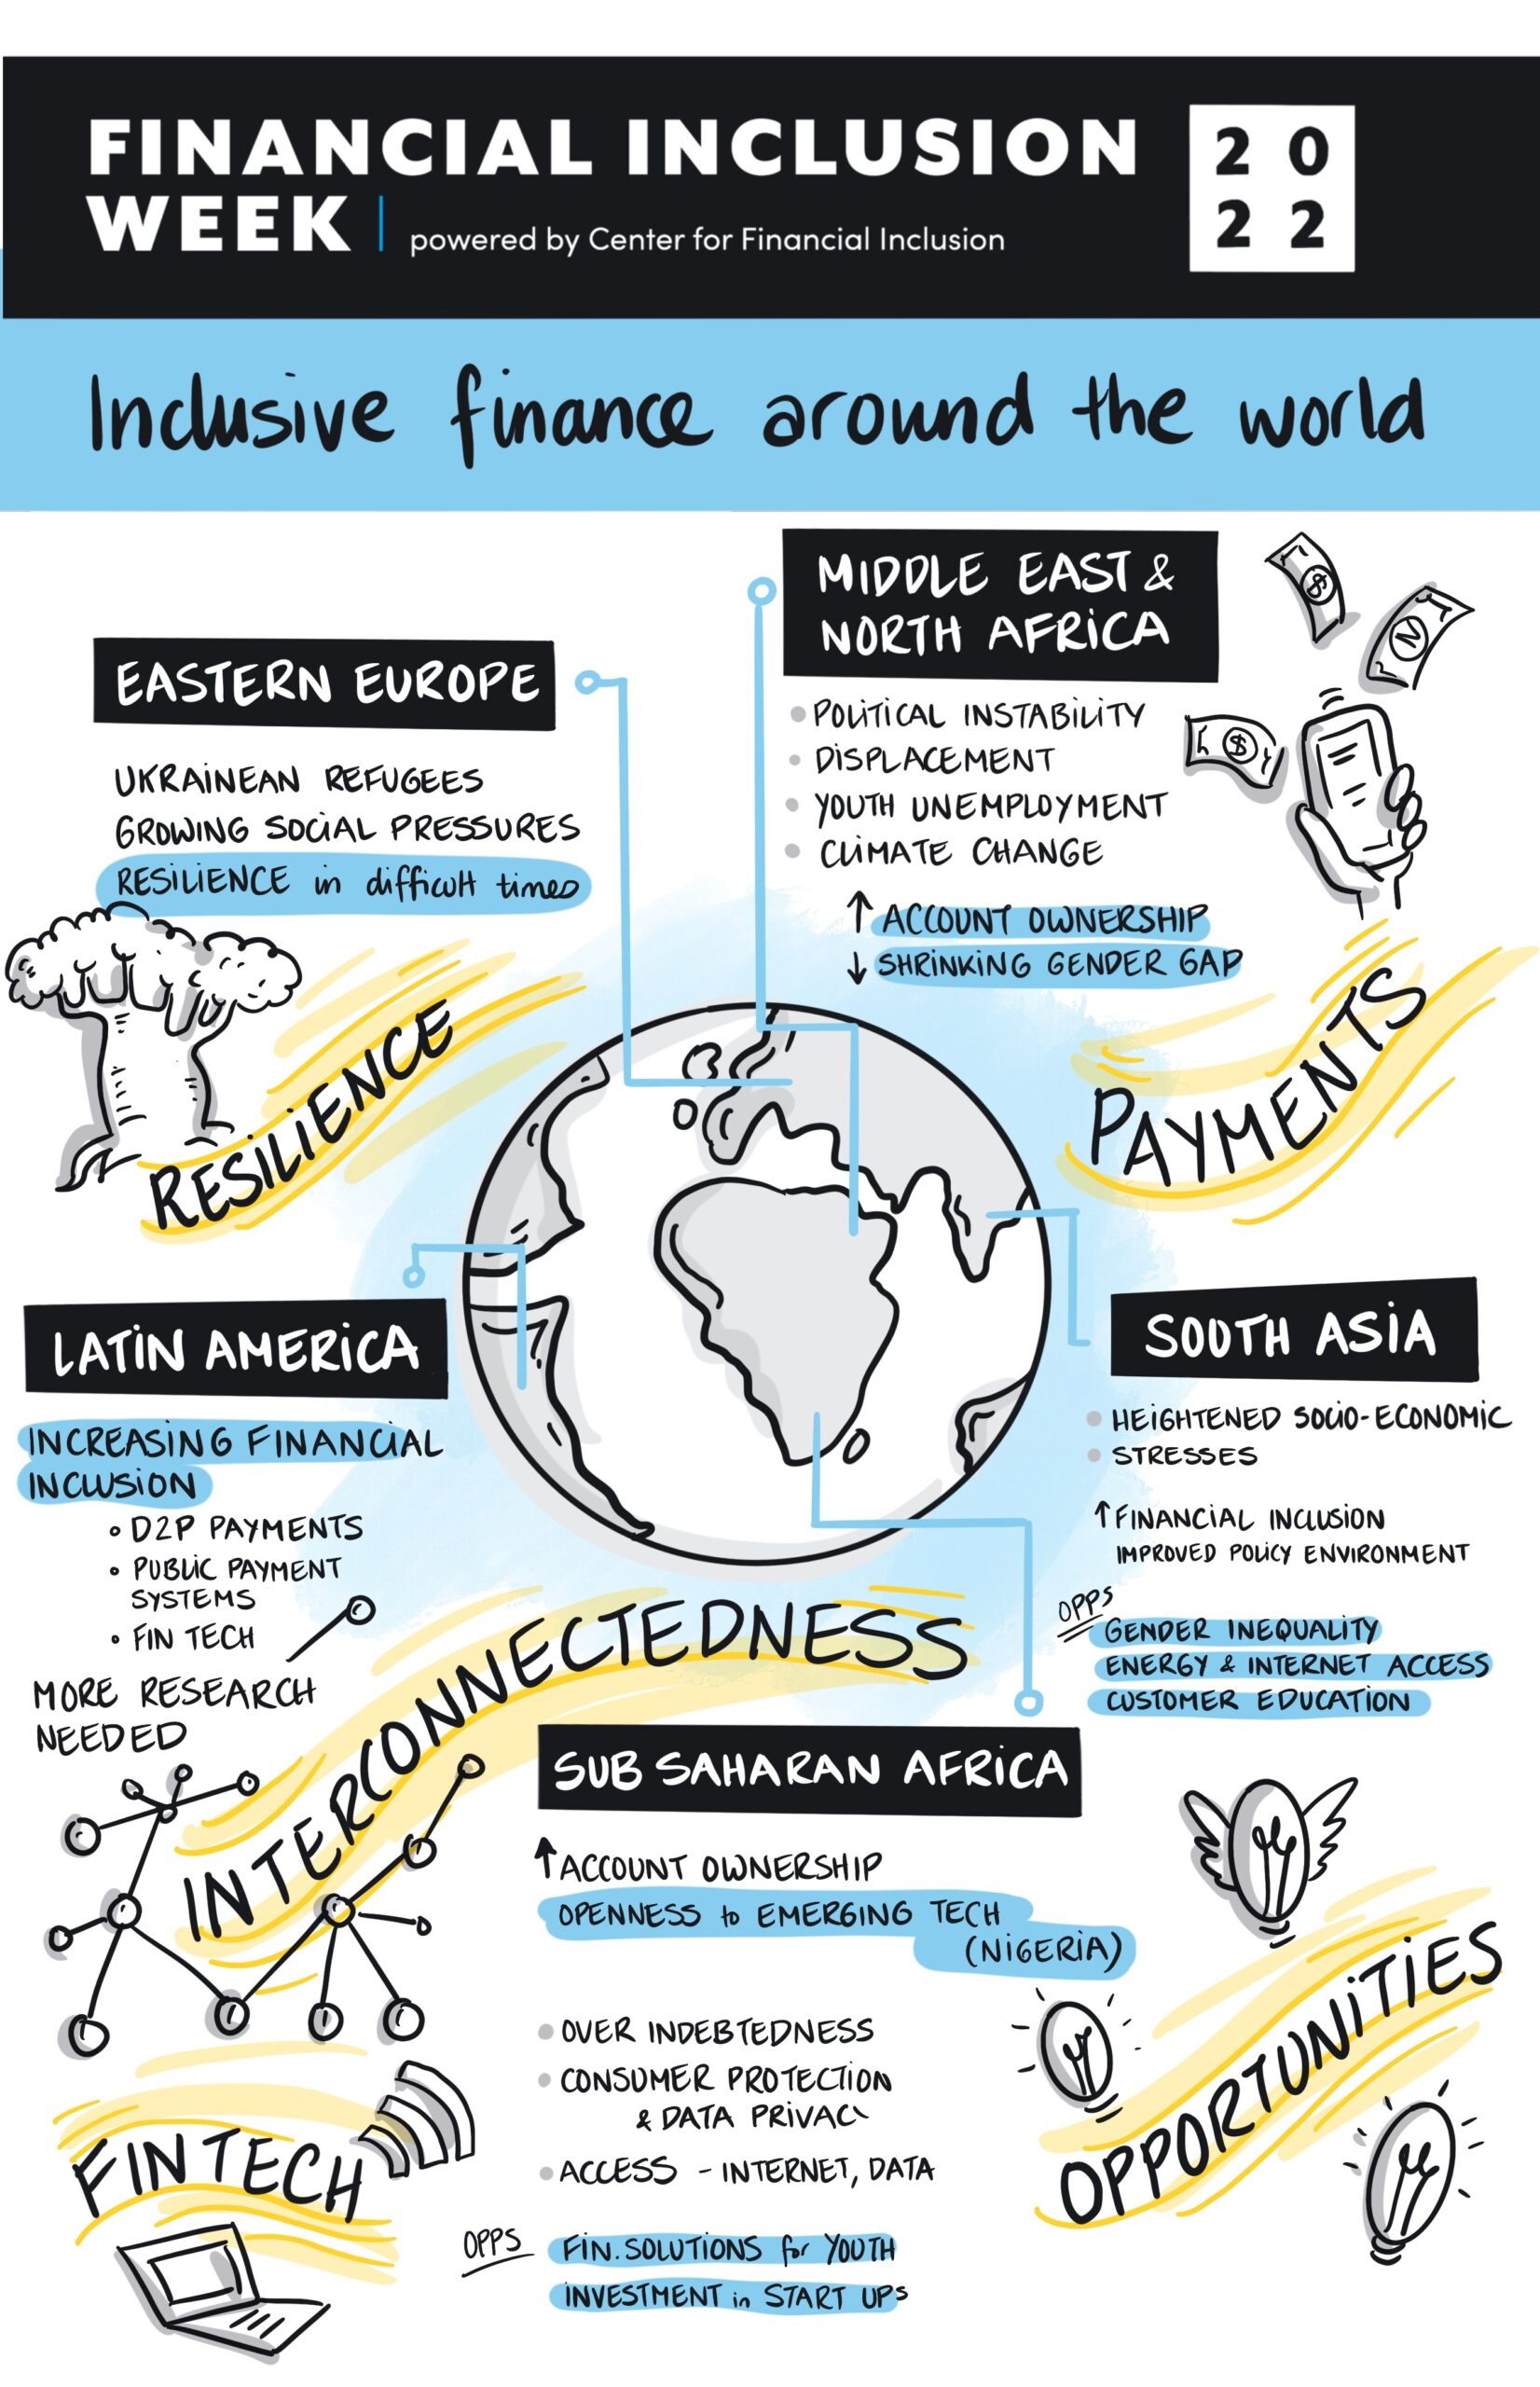 FINANCIAL INCLUSION
WEEK | powered by Center for Financial Inclusion
20
22
Inclusive finance around the world
EASTERN EUROPE
UKRAINEAN REFUGEES
GROWING SOCIAL PRESSURES
RESILIENCE in difficult times
RESILIENCE
MIDDLE EAST &
NORTH AFRICA
POLITICAL INSTABILITY
DISPLACEMENT
YOUTH UNEMPLOYMENT
CLIMATE CHANGE
↑ ACCOUNT OWNERSHIP
↓ SHRINKING GENDER GAP
$
N
$
PAYMENTS
LATIN AMERICA
INCREASING FINANCIAL
INCLUSION
D2P PAYMENTS
PUBLIC PAYMENT
SYSTEMS
FIN TECH
MORE RESEARCH
NEEDED
SOUTH ASIA
HEIGHTENED SOCIO-ECONOMIC
STRESSES
↑ FINANCIAL INCLUSION
IMPROVED POLICY ENVIRONMENT
OPPS
GENDER INEQUALITY
ENERGY & INTERNET ACCESS
CUSTOMER EDUCATION
INTERCONNECTEDNESS
SUB SAHARAN AFRICA
↑ ACCOUNT OWNERSHIP
OPENNESS to EMERGING TECH
(NIGERIA)
OVER INDEBTEDNESS
CONSUMER PROTECTION
& DATA PRIVACY
ACCESS - INTERNET, DATA
OPPS
FIN. SOLUTIONS for YOUTH
INVESTMENT in START UPs
FINTECH
OPPORTUNITIES